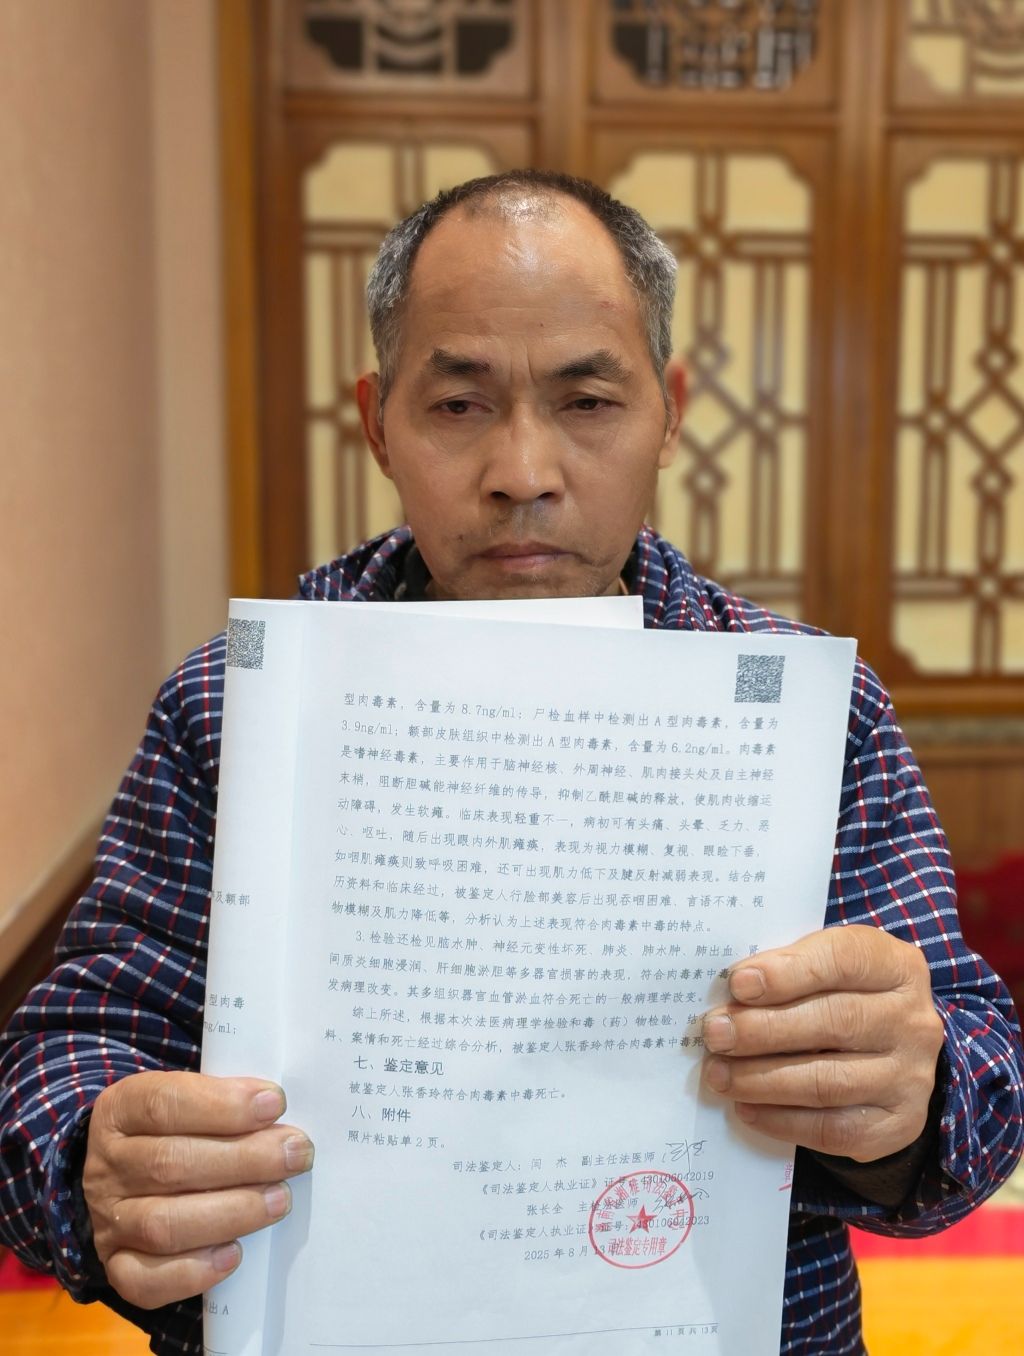 型肉毒素，含量为 8.7ng/ml；尸检血样中检测出 A 型肉毒素，含量为
3.9ng/ml；额部皮肤组织中检测出 A 型肉毒素，含量为 6.2ng/ml。肉毒素
是嗜神经毒素，主要作用于脑神经核、外周神经、肌肉接头处及自主神经
末梢，阻断胆碱能神经纤维的传导，抑制乙酰胆碱的释放，使肌肉收缩运
动障碍，发生软瘫。临床表现轻重不一，病初可有头痛、头晕、乏力、恶
心、呕吐，随后出现眼内外肌瘫痪，表现为视力模糊、复视、眼睑下垂，
如咽肌瘫痪则致呼吸困难，还可出现肌力低下及腱反射减弱表现。结合病
历资料和临床经过，被鉴定人行脸部美容后出现吞咽困难、言语不清、视
物模糊及肌力降低等，分析认为上述表现符合肉毒素中毒的特点。
3.检验还检见脑水肿、神经元变性坏死、肺炎、肺水肿、肺出血、肾
间质炎细胞浸润、肝细胞淤胆等多器官损害的表现，符合肉毒素中毒
发病理改变。其多组织器官血管淤血符合死亡的一般病理学改变。
综上所述，根据本次法医病理学检验和毒（药）物检验，结
料、案情和死亡经过综合分析，被鉴定人张香玲符合肉毒素中毒死
七、鉴定意见
被鉴定人张香玲符合肉毒素中毒死亡。
八、附件
照片粘贴单 2 页。
司法鉴定人：闫 杰 副主任法医师
《司法鉴定人执业证》证号：430106042019
张长全 主检法医师
《司法鉴定人执业证》证号：430106042023
2025 年 8 月 13 日
司法鉴定专用章
第 11 页 共 13 页
及额部
型肉毒
ng/ml；
出 A